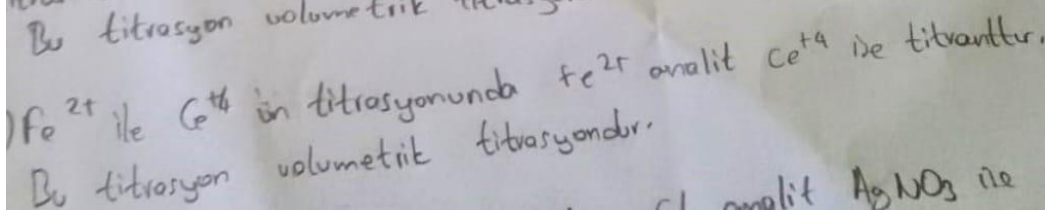 Bu titrasyon volumetrik
)Fe²⁺ ile Ce⁺⁴ ün titrasyonunda Fe²⁺ analit Ce⁺⁴ ise titranttır.
Bu titrasyon volumetrik titrasyondur.
analit AgNO₃ ile